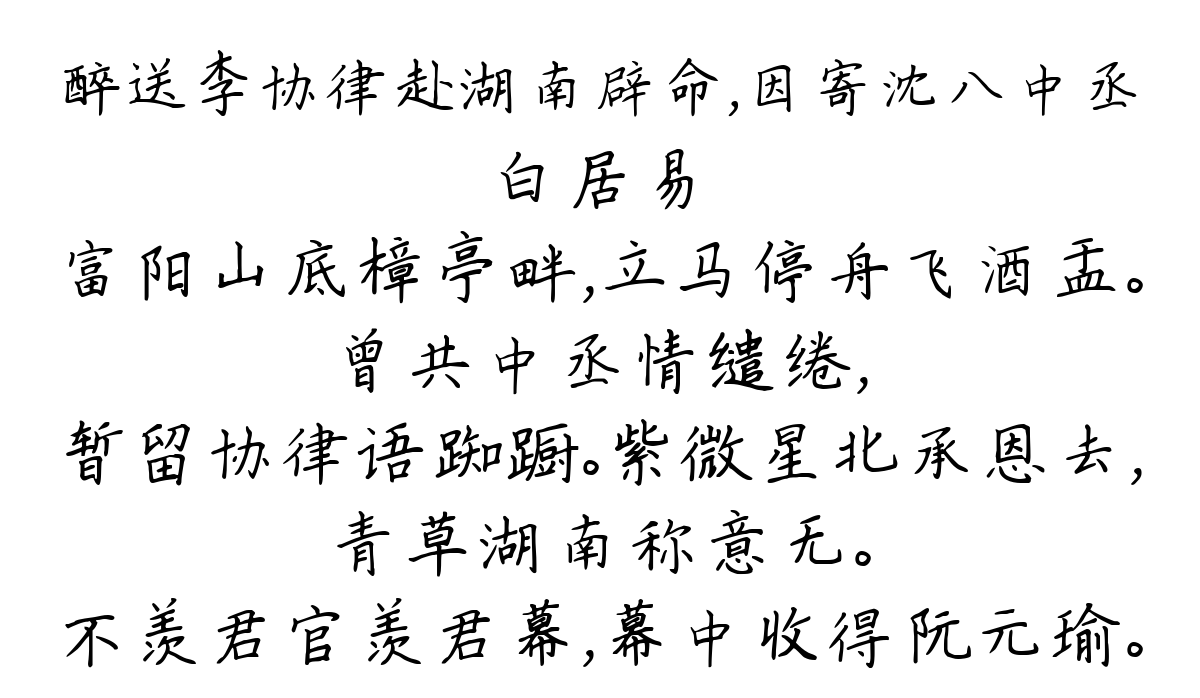 醉送李协律赴湖南辟命,因寄沈八中丞
白居易
富阳山底樟亭畔,立马停舟飞酒盂。
曾共中丞情缱绻,
暂留协律语踟蹰。紫微星北承恩去,
青草湖南称意无。
不羡君官羡君幕,幕中收得阮元瑜。